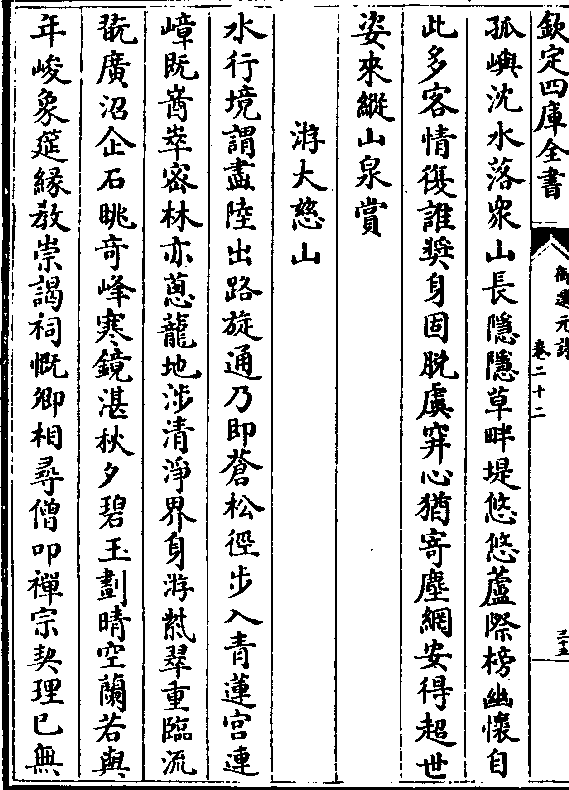 欽定四庫全書
御選元詩 卷二十二 三十五
孤嶼沈水落衆山長隱隱草畔堤悠悠蘆際榜幽懷自
此多客情復誰奬身固脫虞穽心猶寄塵網安得超世
姿來縱山泉賞
游大慈山
水行境謂盡陸出路旋通乃即蒼松徑步入青蓮宮連
嶂既崷崒密林亦蔥蘢地涉清淨界身游紫翠重臨流
翫廣沼企石眺奇峰寒鏡湛秋夕碧玉劃晴空蘭若與
年峻象筵緣教崇謁祠慨卿相尋僧叩禪宗契理已無